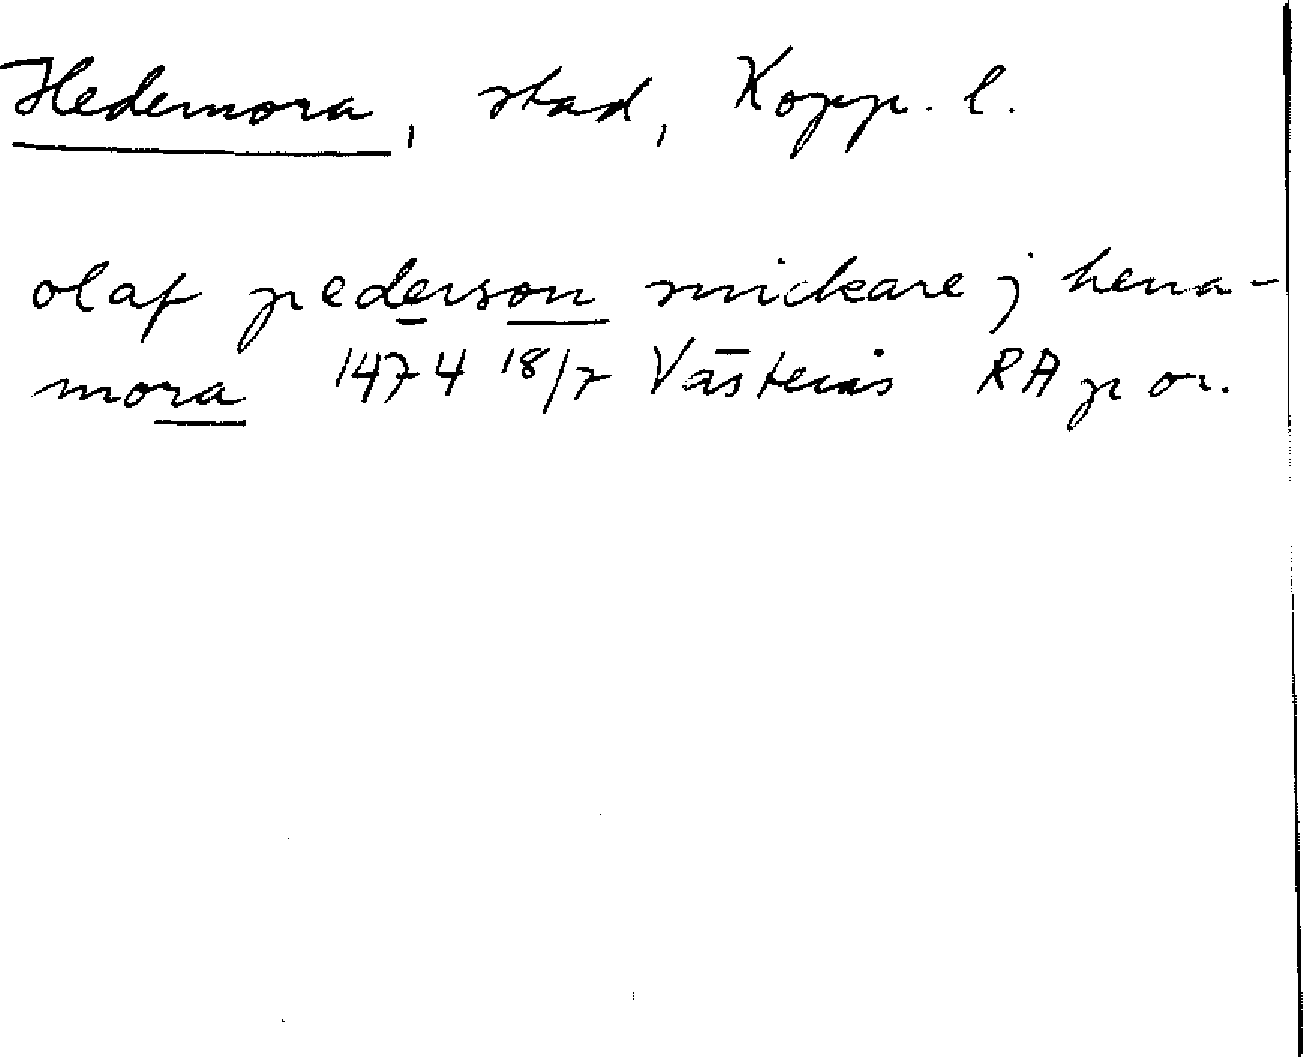 Hedemora, stad, Kopp. l.
olaf pederson smickare j hema-
mora 1474 18/7 Västerås RA p or.